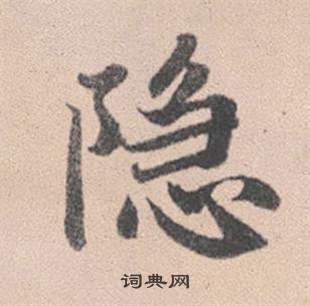 隐
词典网